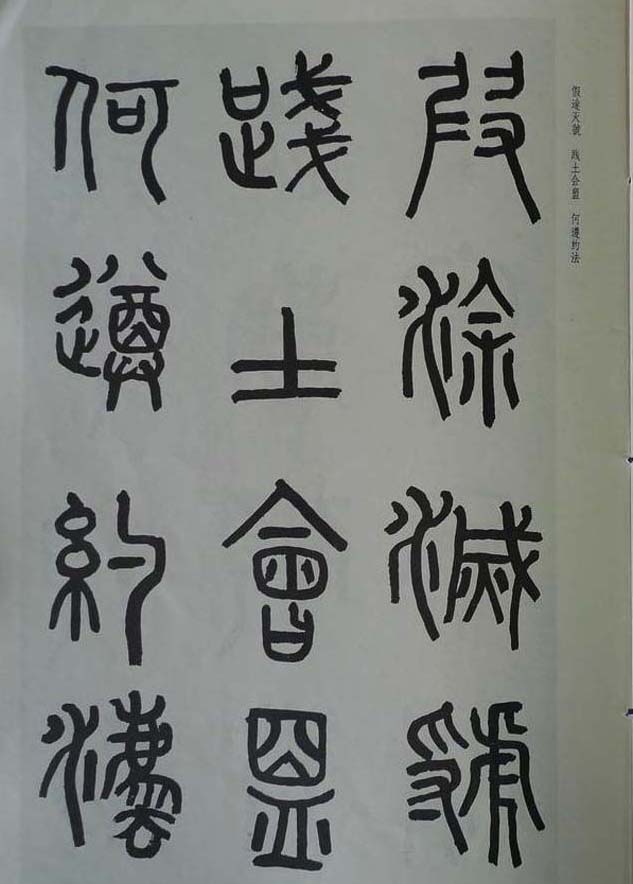 假途灭虢 践土会盟 何遵约法
叚涂滅虢
踐土會盟
何遵約灋